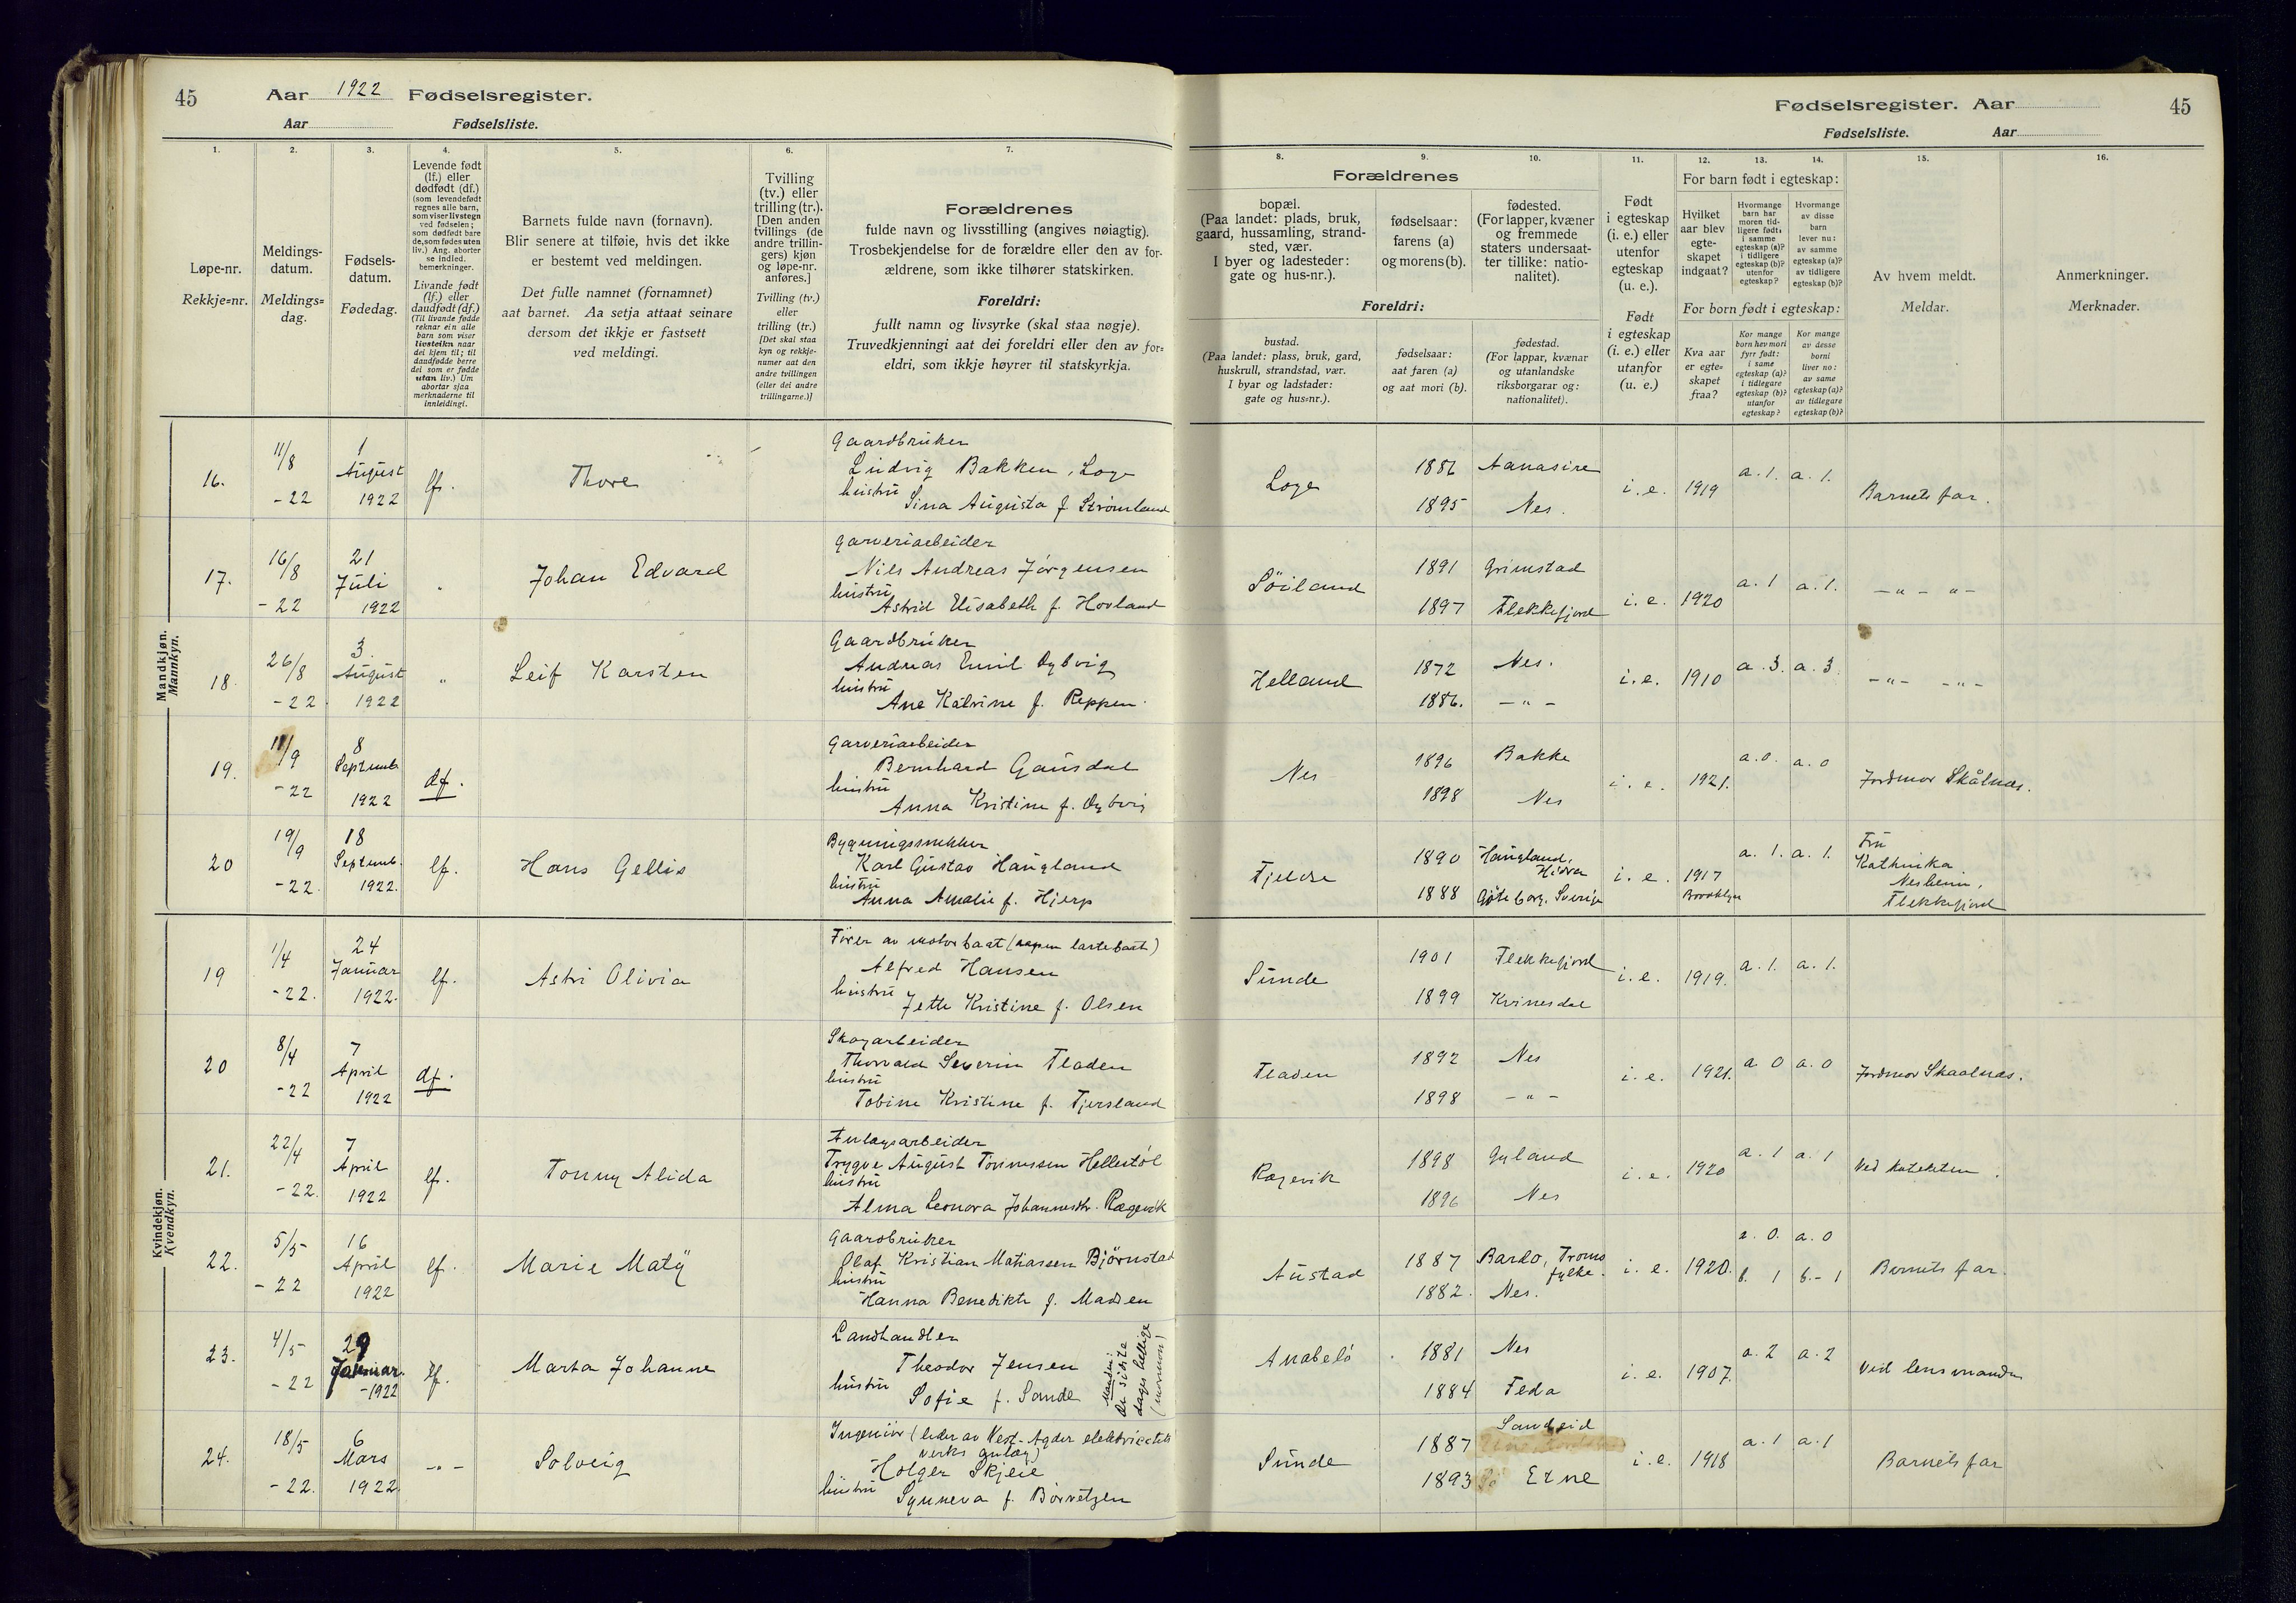 45 Aar 1922 Fødselsregister.
Aar Fødselsliste.
Fødselsregister. Aar 45
Fødselsliste. Aar
1. 2. 3. 4. 5. 6. 7.
Løpe-nr.
Rekkje-nr.
Meldings-
datum.
Meldings-
dag.
Fødsels-
datum.
Fødedag.
Levende født
(lf.) eller
dødfødt (df.)
(som levendefødt
regnes alle barn,
som viser livstegn
ved fødselen;
som dødfødt bare
de, som fødes uten
liv.) Ang. aborter
se indled.
bemerkninger.
Livande født
(lf.) eller
daudfødt (df.)
(Til livande fødde
reknar ein alle
barn som viser
livsteikn naar
dei kjem til; til
daudfødde berre
dei som er fødde
utan liv.) Um
abortar sjaa
merknaderne til
innleidingi.
Barnets fulde navn (fornavn).
Blir senere at tilføie, hvis det ikke
er bestemt ved meldingen.
Det fulle namnet (fornamnet)
aat barnet. Aa setja attaat seinare
dersom det ikkje er fastsett
ved meldingi.
Tvilling
(tv.) eller
trilling (tr.).
[Den anden
tvillings (de
andre trillin-
gers) kjøn
og løpe-nr.
anføres.]
Tvilling (tv.)
eller
trilling (tr.)
[Det skal staa
kyn og rekkje-
numer aat den
andre tvillingen
(eller dei andre
trillingarne.)]
Forældrenes
fulde navn og livsstilling (angives nøiagtig).
Trosbekjendelse for de forældre eller den av for-
ældrene, som ikke tilhører statskirken.
Foreldri:
fullt namn og livsyrke (skal staa nøgje).
Truvedkjenningi aat dei foreldri eller den av for-
eldri, som ikkje høyrer til statskyrkja.
8. 9. 10. 11. 12. 13. 14. 15. 16.
Forældrenes
bopæl.
(Paa landet: plads, bruk,
gaard, hussamling, strand-
sted, vær.
I byer og ladesteder:
gate og hus-nr.).
fødselsaar:
farens (a)
og morens (b).
fødested.
(For lapper, kvæner
og fremmede
staters undersaat-
ter tillike: natio-
nalitet).
Foreldri:
bustad.
(Paa landet: plass, bruk, gard,
huskrull, strandstad, vær.
I byar og ladstader:
gate og hus-nr.).
fødselsaar:
aat faren (a)
og aat mori (b).
fødestad.
(For lappar, kvænar
og utanlandske
riksborgarar og:
nationalitet).
Født
i egteskap
(i. e.) eller
utenfor
egteskap
(u. e.).
Født
i egteskap
(i. e.) eller
utanfor
(u. e.)
For barn født i egteskap:
Hvilket
aar blev
egte-
skapet
indgaat?
Hvormange
barn har
moren tid-
ligere født,
i samme
egteskap (a)?
i tidligere
egteskap (b)?
utenfor
egteskap?
Hvormange
av disse
barn
lever nu:
av samme
egteskap (a)?
av tidligere
egteskap (b)?
For born født i egteskap:
Kva aar
er egte-
skapet
fraa?
Kor mange
born hev mori
fyrr født:
i same
egteskap (a)?
i tidlegare
egteskap (b)?
utanfor
egteskap?
Kor mange
av desse
borni
liver no:
av same
egteskap (a)?
av tidlegare
egteskap (b)?
Av hvem meldt.
Meldar.
Anmerkninger.
Merknader.
Mandkjøn.
Mannkyn.
16. 11/8 -22 1 August 1922 lf. Thore
Gaardbruker
Ludvig Bakken, Loge
hustru
Sina Augusta f. Strømland
Loge 1886 Aanasire i. e. 1919 a. 1. a. 1. Barnets far.
1895 Nes.
17. 16/8 -22 21 Juli 1922 " Johan Edvard
Garveriarbeider
Nils Andreas Jørgensen
hustru
Astrid Elisabeth f. Hovland
Söiland 1891 Grimstad i. e. 1920 a. 1 a. 1. -"- "-
1897 Flekkefjord
18. 26/8 -22. 3. August 1922 " Leif Karsten
Gaardbruker
Andreas Emil Dybvig
hustru
Ane Katrine f. Reppen.
Helland 1872 Nes. i. e. 1910 a. 3. a. 3. -"- -"-
1886. -"-
19. 11/9 -22 8 Septemb. 1922 df.
Garveriarbeider
Bernhard Gausdal
hustru
Anna Kristine f. Dybvig
Nes 1896 Bakke i. e. 1921. a. 0. a. 0 Jordmor Skålnes.
1898 Nes
20 19/9 -22. 18 Septemb. 1922. lf. Hans Gellis
Bygningssnekker
Karl Gustav Haugland
hustru
Anna Amalie f. Hjerp
Fjeldse 1890 Haugland, Hidra i. e. 1917 Brooklyn a. 1. a. 1. Fru
1888 Göteborg. Sverige
Kathinka
Nesheim,
Flekkefjord
Kvindekjøn.
Kvendkyn.
19 1/4 -22. 24 Januar 1922. lf. Astri Olivia
Fører av motorbaat (aapen lastebaat)
Alfred Hansen
hustru
Jette Kristine f. Olsen
Sunde 1901 Flekkefjord i. e. 1919. a. 1. a. 1.
1899 Kvinesdal
20 8/4 -22 7 April 1922 df.
Skogarbeider
Thorvald Severin Fladen
hustru
Tobine Kristine f. Fjersland
Fladen 1892 Nes i. e. 1921. a. 0 a. 0 Jordmor Skaalnes.
1898 -"-
21. 22/4 -22. 7 April 1922 lf. Tonny Alida
Anlægsarbeider
Trygve August Tønnessen Hellestøl
hustru
Alma Leonora Johannesdtr. Rægevik
Rægevik 1898 Gyland i. e. 1920 a. 1 a. 1 Ved kateketen.
1896 Nes
22. 5/5 -22 16 April 1922 lf. Marie Matÿ
Gaardbruker
Olaf Kristian Matiassen Björnstad
hustru
Hanna Benedikte f. Madsen
Austad 1887 Bardo, Troms fylke. i. e. 1920. a. 0. a. 0 Barnets far.
1882. Nes. b. 1 b. - 1
23. 4/5 -22 29 Januar. -1922 lf. Marta Johanne
Landhandler
Theodor Jensen
hustru
Sofie f. Sande
Manden:
De sidste
dages hellige
(mormon)
Anabelø 1881 Nes i. e. 1907. a. 2 a. 2 Ved lensmanden
1884 Feda
24. 18/5 -22. 6 Mars 1922. -"- Solveig
Ingeniör (leder av Vest-Agder elektricitets
verks anlæg)
Holger Skjeie
hustru
Synneva f. Börretzen
Sunde 1887 Sandeid i. e. 1918 a. 1 a. 1 Barnets far
1893 Etne